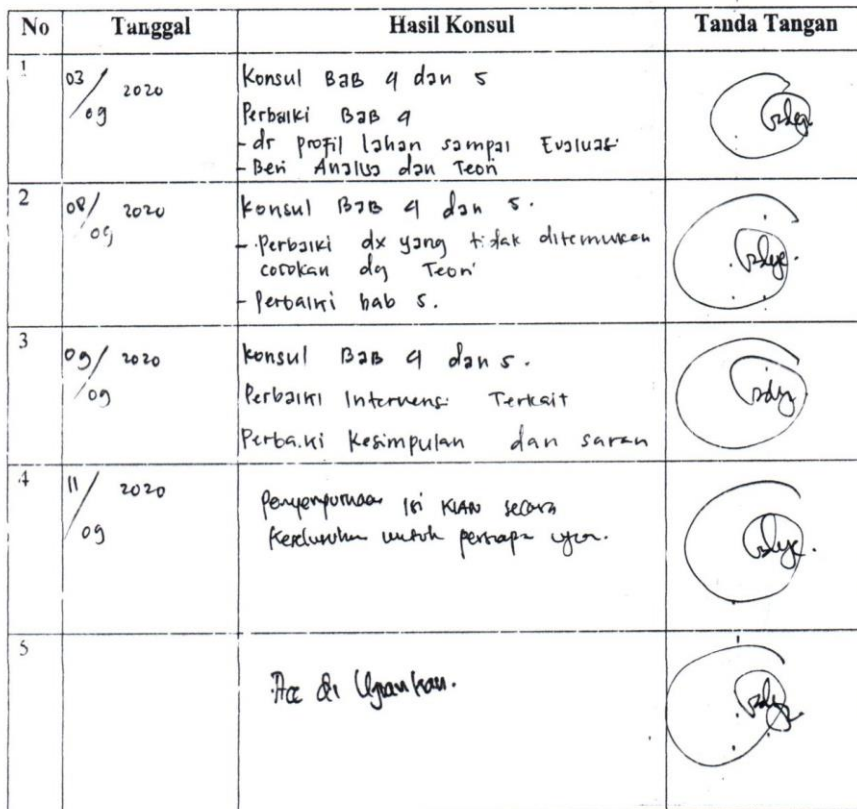 No Tanggal Hasil Konsul Tanda Tangan
1 03/09 2020 Konsul BaB 4 dan 5
Perbaiki BaB 4
- dr profil lahan sampai Evaluasi
- Beri Analisa dan Teori
2 08/09 2020 Konsul BaB 4 dan 5.
- Perbaiki dx yang tidak ditemukan
cocokan dg Teori
- Perbaiki bab 5.
3 09/09 2020 Konsul BaB 4 dan 5.
Perbaiki Intervensi Terkait
Perbaiki Kesimpulan dan saran
4 11/09 2020 Penyempurnaan Isi KIAN secara
Keseluruhan untuk persiapan ujian.
5 Acc di Ujiankan.